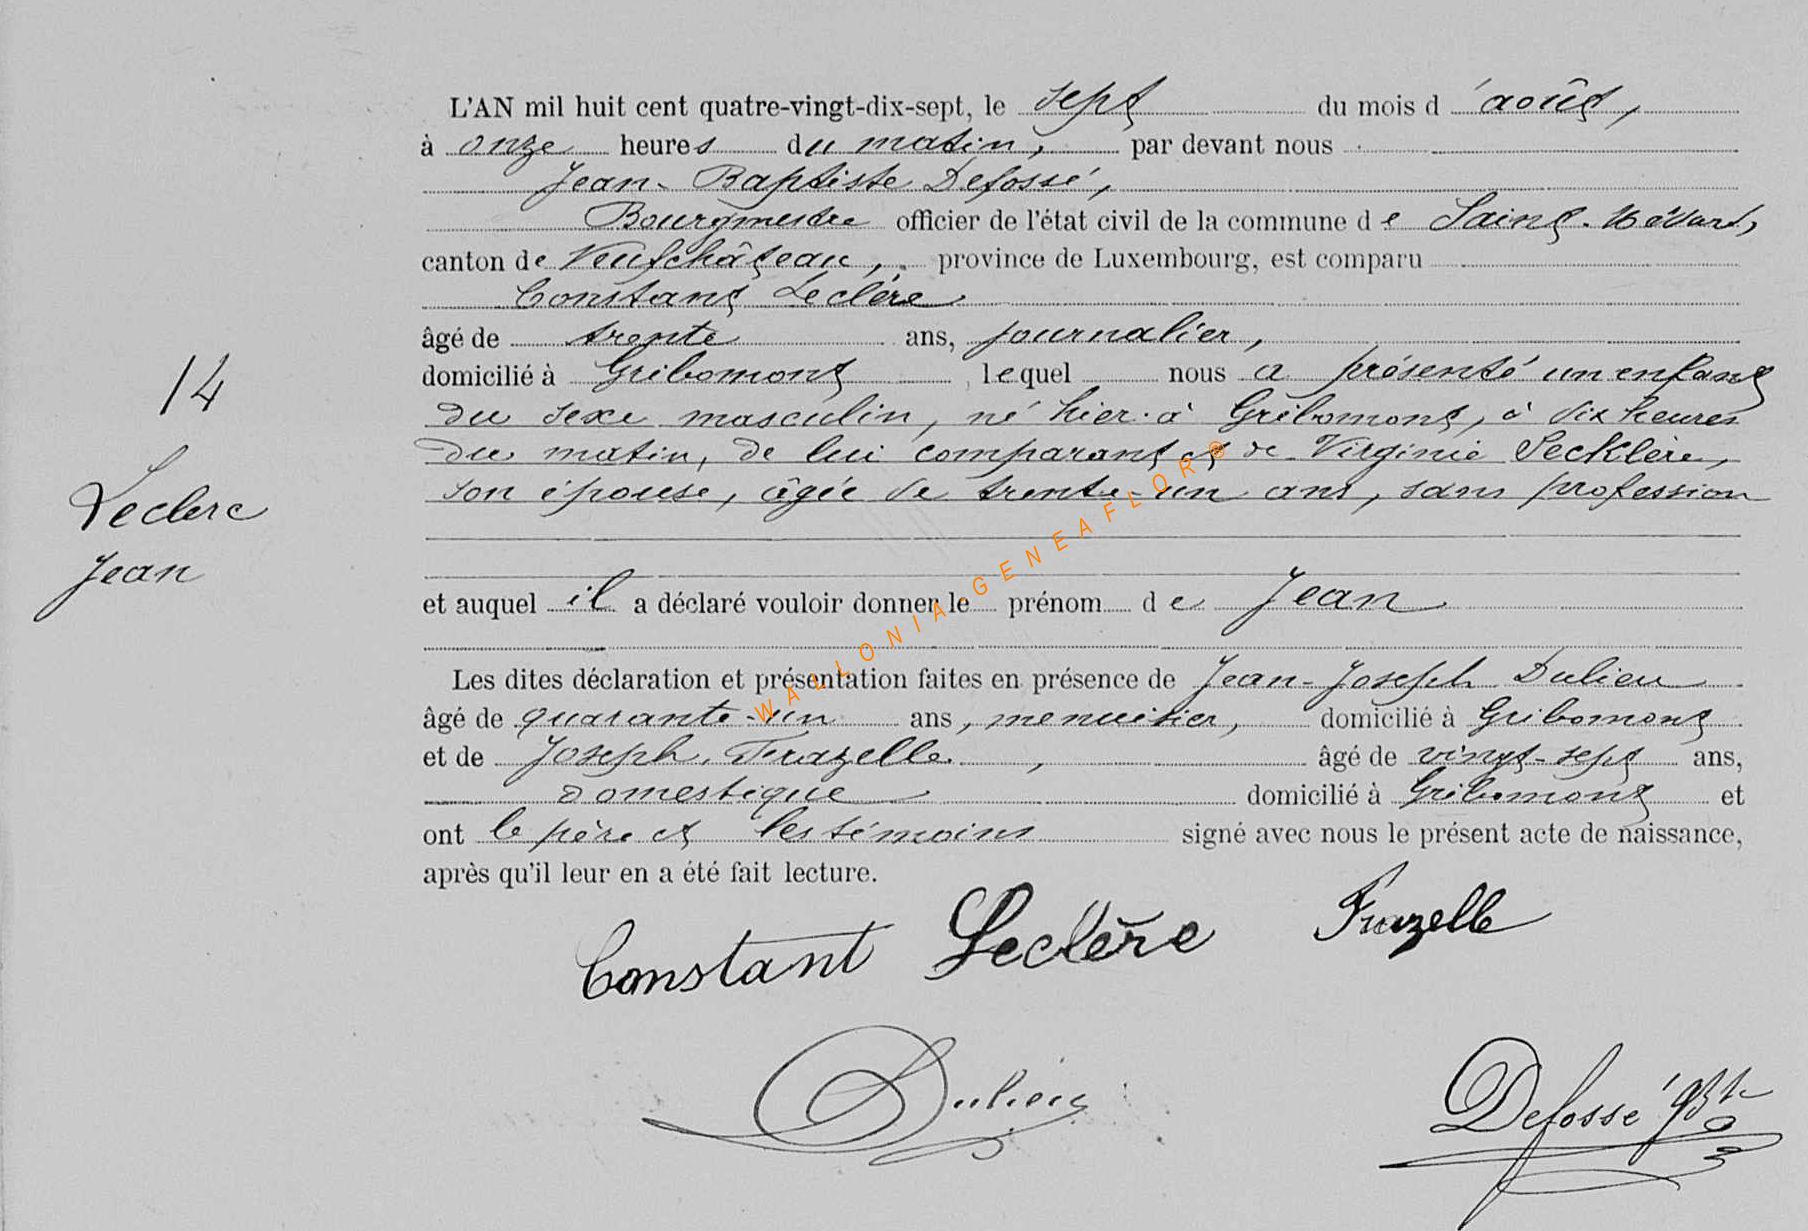 L'AN mil huit cent quatre-vingt-dix-sept, le sept du mois d'août,
à onze heures du matin, par devant nous
Jean-Baptiste Defossé,
Bourgmestre officier de l'état civil de la commune de Saint-Médard,
canton de Neufchâteau, province de Luxembourg, est comparu
Constant Leclère
âgé de trente ans, journalier,
domicilié à Gribomont, lequel nous a présenté un enfant
du sexe masculin, né hier à Gribomont, à dix heures
du matin, de lui comparant et de Virginie Secklère,
son épouse, âgée de trente-un ans, sans profession
et auquel il a déclaré vouloir donner le prénom de Jean
Les dites déclaration et présentation faites en présence de Jean-Joseph Dulieu
âgé de quarante-un ans, menuisier, domicilié à Gribomont
et de Joseph Frazelle, âgé de vingt-sept ans,
domestique domicilié à Gribomont et
ont le père et les témoins signé avec nous le présent acte de naissance,
après qu'il leur en a été fait lecture.
14
Leclerc
Jean
Constant Leclère Frazelle
Dulieu Defossé
WALLONIA-GENEAFLOR®